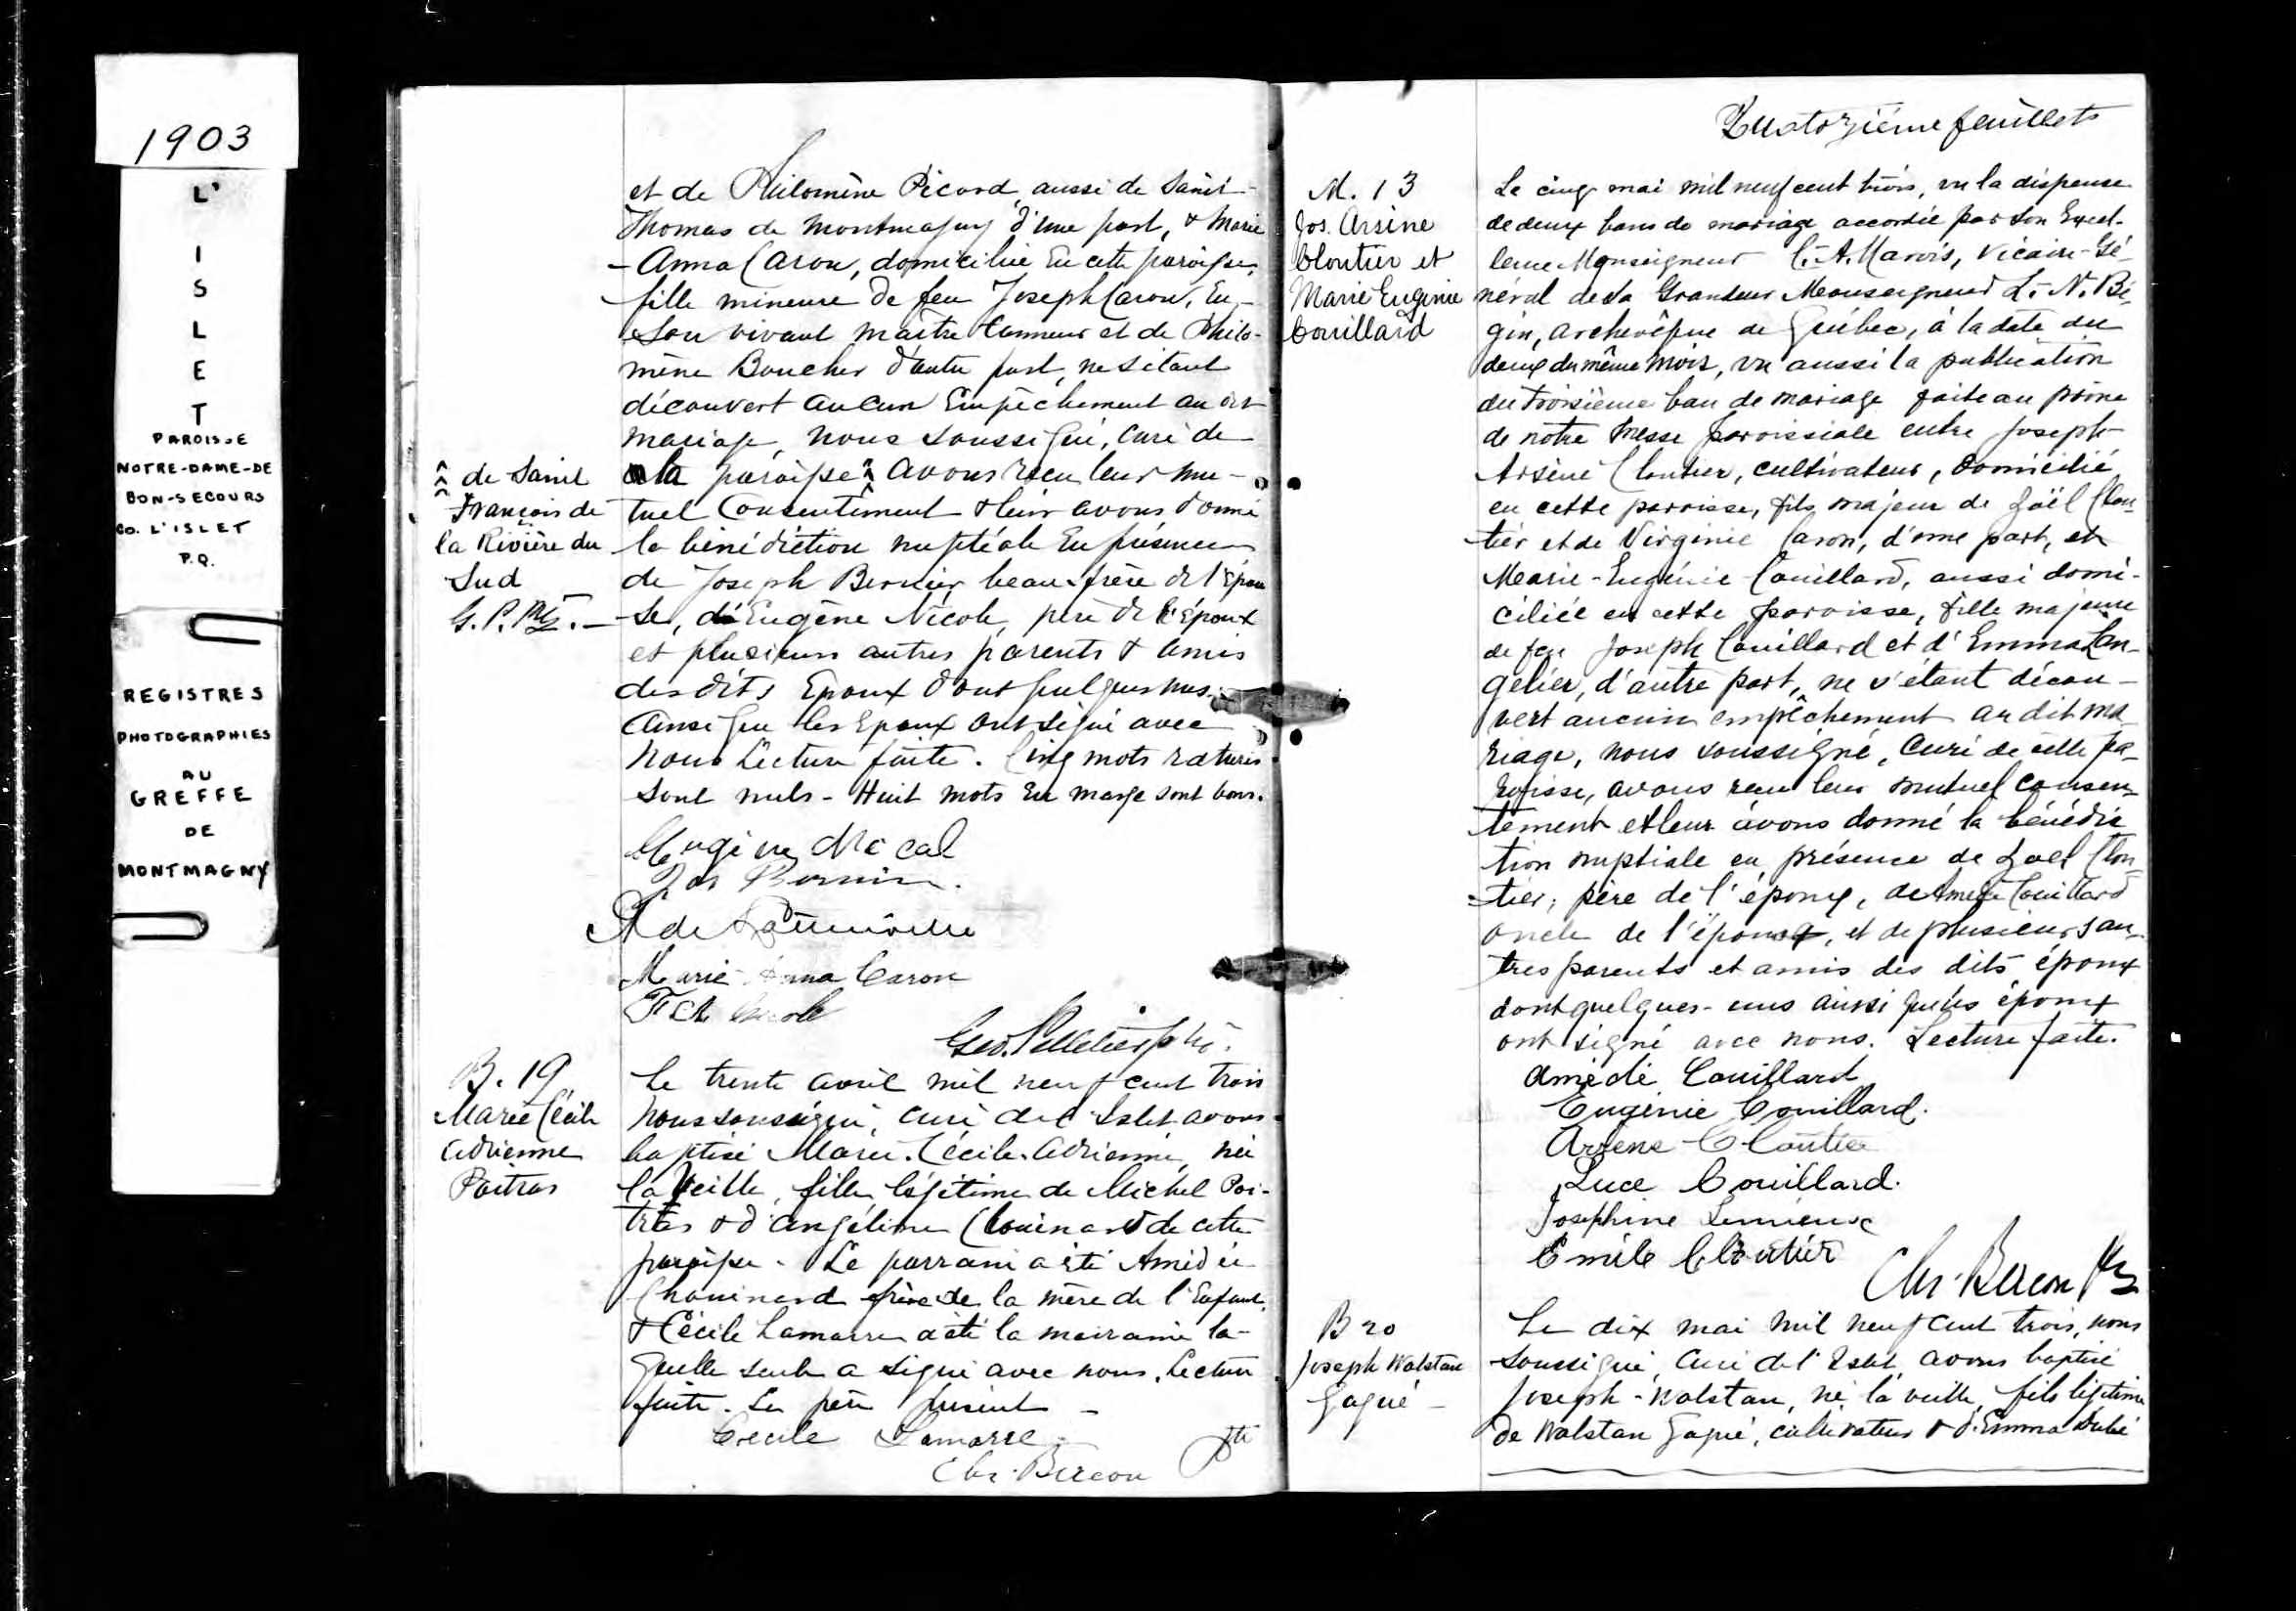 1903
L'
I
S
L
E
T
PAROISSE
NOTRE-DAME-DE
BON-SECOURS
CO. L'ISLET
P.Q.
REGISTRES
PHOTOGRAPHIES
AU
GREFFE
DE
MONTMAGNY
et de Philomène Picard, aussi de Saint-
Thomas de Montmagny d'une part, & Marie
-Anna Caron, domiciliée en cette paroisse,
fille mineure de feu Joseph Caron, en
son vivant maître tanneur et de Philo-
mène Boucher d'autre part, ne s'étant
découvert aucun empêchement au dit
mariage, nous soussigné, curé de
la paroisse avons reçu leur mu-
tuel consentement & leur avons donné
la bénédiction nuptiale en présence
de Joseph Bernier beau-frère de l'épou
-se, d'Eugène Nicole, père de l'époux
et plusieurs autres parents & amis
des dits époux dont quelques uns
ainsi que les époux ont signé avec
nous Lecture faite. Cinq mots raturés
sont nuls - Huit mots en marge sont bons.
de Saint
François de
la Rivière du
Sud
G. P. Ptre. -
Eugène Nicol
Jos Bernier.
Marie Anna Caron
Geo. Pelletier ptre.
B. 19
Marie Cécile
Adrienne
Poitras
Le trente avril mil neuf cent trois
nous soussigné, curé de l'Islet avons
baptisé Marie-Cécile-Adrienne, née
la veille, fille légitime de Michel Poi-
tras & d'Angéline Chouinard de cette
paroisse. Le parrain a été Amédée
Chouinard frère de la mère de l'Enfant,
& Cécile Lamarre a été la marraine la-
quelle seule a signé avec nous. Lecture
faite. Le père présent -
Cécile Lamarre
Chs. Bacon Ptre
Quatorzième feuillet
M. 13
Jos. Arsène
Cloutier et
Marie Eugénie
Couillard
Le cinq mai mil neuf cent trois, vu la dispense
de deux bans de mariage accordée par Son Excel-
lence Monseigneur C.-A. Marois, Vicaire-Gé-
néral de Sa Grandeur Monseigneur L.-N. Bé-
gin, archevêque de Québec, à la date du
deux du même mois, vu aussi la publication
du troisième ban de mariage faite au prône
de notre messe paroissiale entre Joseph
Arsène Cloutier, cultivateur, domicilié
en cette paroisse, fils majeur de Joël Clou-
tier et de Virginie Caron, d'une part, et
Marie-Eugénie Couillard, aussi domi-
ciliée en cette paroisse, fille majeure
de feu Joseph Couillard et d'Emma Lan-
gelier, d'autre part, ne s'étant décou-
vert aucun empêchement au dit ma-
riage, nous soussigné, curé de cette pa-
roisse, avons reçu leur mutuel consen-
tement et leur avons donné la bénédic
tion nuptiale en présence de Joël Clou-
tier, père de l'époux, de Amédé Couillard
oncle de l'épouse, et de plusieurs au-
tres parents et amis des dits époux
dont quelques-uns ainsi que les époux
ont signé avec nous. Lecture faite.
Amédé Couillard
Eugénie Couillard.
Arsene Cloutier
Luce Couillard.
Joséphine Lemieux
Emile Cloutier
Chs. Bacon Ptre
B 20
Joseph Walstan
Gagné -
Le dix mai mil neuf cent trois, nous
soussigné, curé de l'Islet, avons baptisé
Joseph-Walstan, né la veille, fils légitime
de Walstan Gagné, cultivateur & d'Emma Dubé